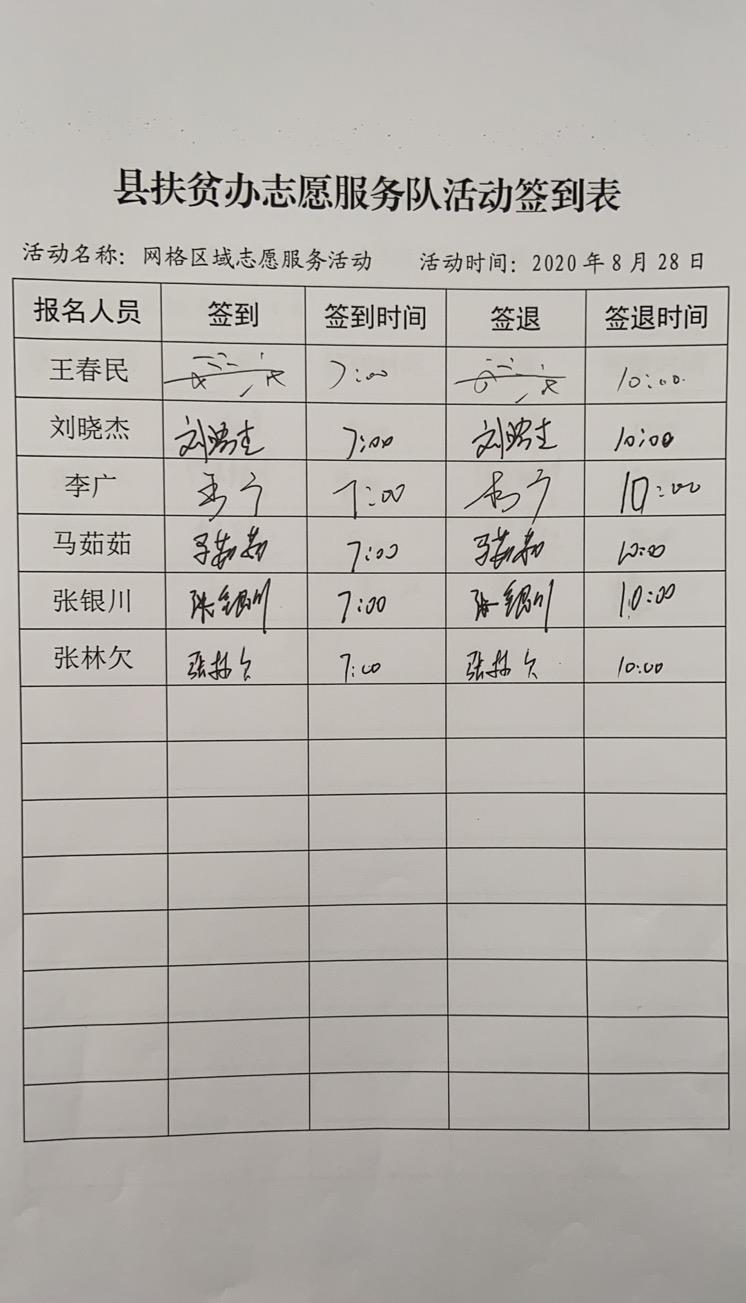 县扶贫办志愿服务队活动签到表
活动名称：网格区域志愿服务活动 活动时间：2020年8月28日
报名人员 签到 签到时间 签退 签退时间
王春民 7:00 10:00
刘晓杰 刘晓杰 7:00 刘晓杰 10:00
李广 李广 7:00 李广 10:00
马茹茹 马茹茹 7:00 马茹茹 10:00
张银川 张银川 7:00 张银川 10:00
张林欠 张林欠 7:00 张林欠 10:00